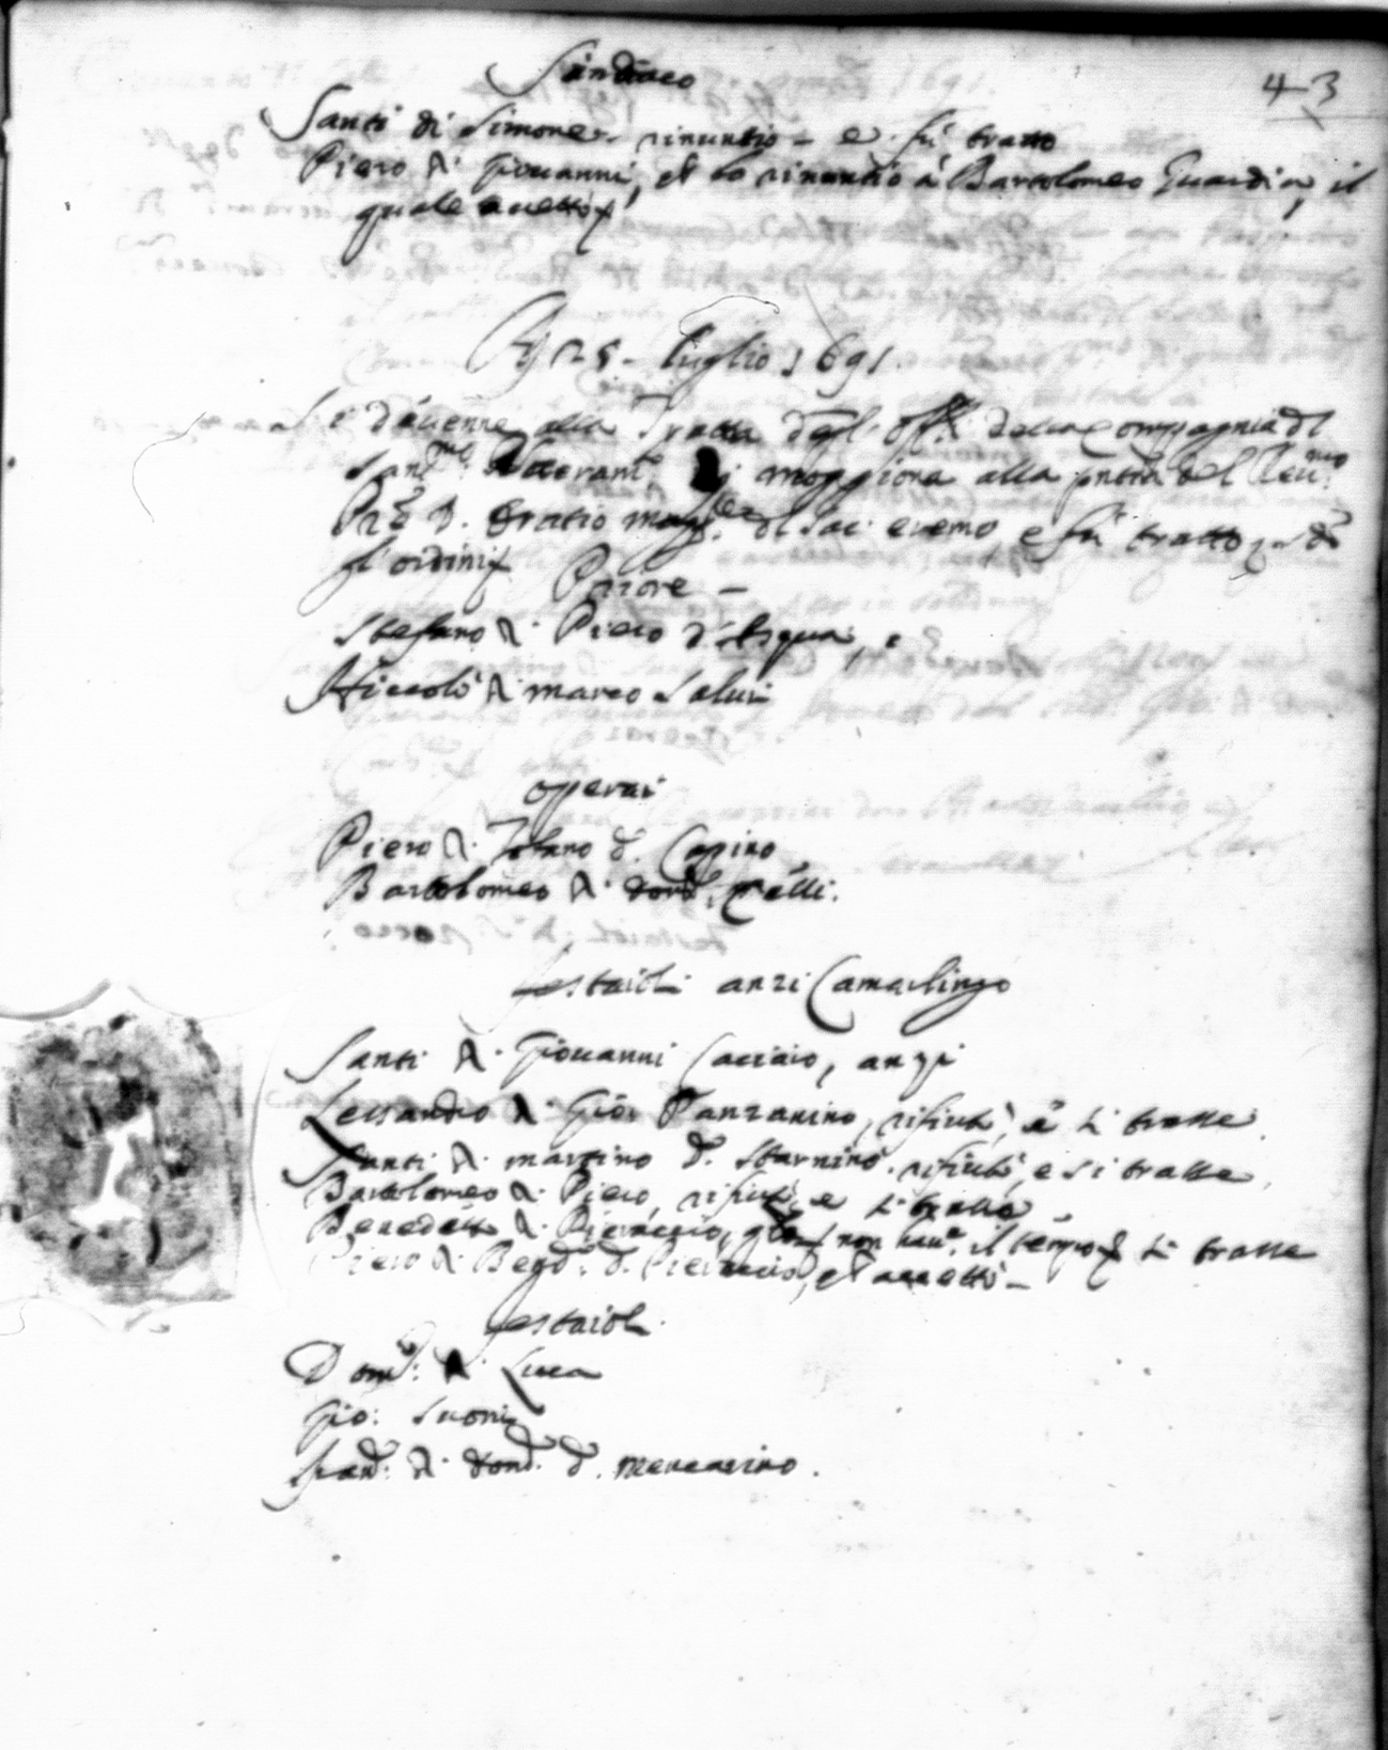 Sindaco
43
Santi di Simone rinuntiò - e fù tratto
Piero di Giovanni, et lo rinuntiò à Bartolomeo Guardia, il
quale accettò
A dì 25 - luglio 1691.
Si d'auenne alla Tratta degl' Off.li della Compagnia del
Sant.mo di Moggiona alla pntia del Reu.mo
Pre D. Oratio Magg.re del Sac: eremo, e fù tratto
gl'ordini
Priore -
Stefano di Piero
Niccolò di Marco Salui
operai
Piero di d. Capino
Bartolomeo di Dom.co
festaioli anzi Camarlingo
Santi di Giouanni Caciaio, anzi
Lessandro di Gio: Panzanino, rifiutò, e si trasse
Santi di Martino d. Starnino. rifiutò, e si trasse
Bartolomeo di Piero, rifiutò e si trasse
Benedetto di Pieraccio, non hau.a il tempo si trasse
Piero di Bened. d. Pieraccio, et accettò -
festaioli
Dom.co di Luca
Gio: Suoni
di Dom.co d. Mencarino.